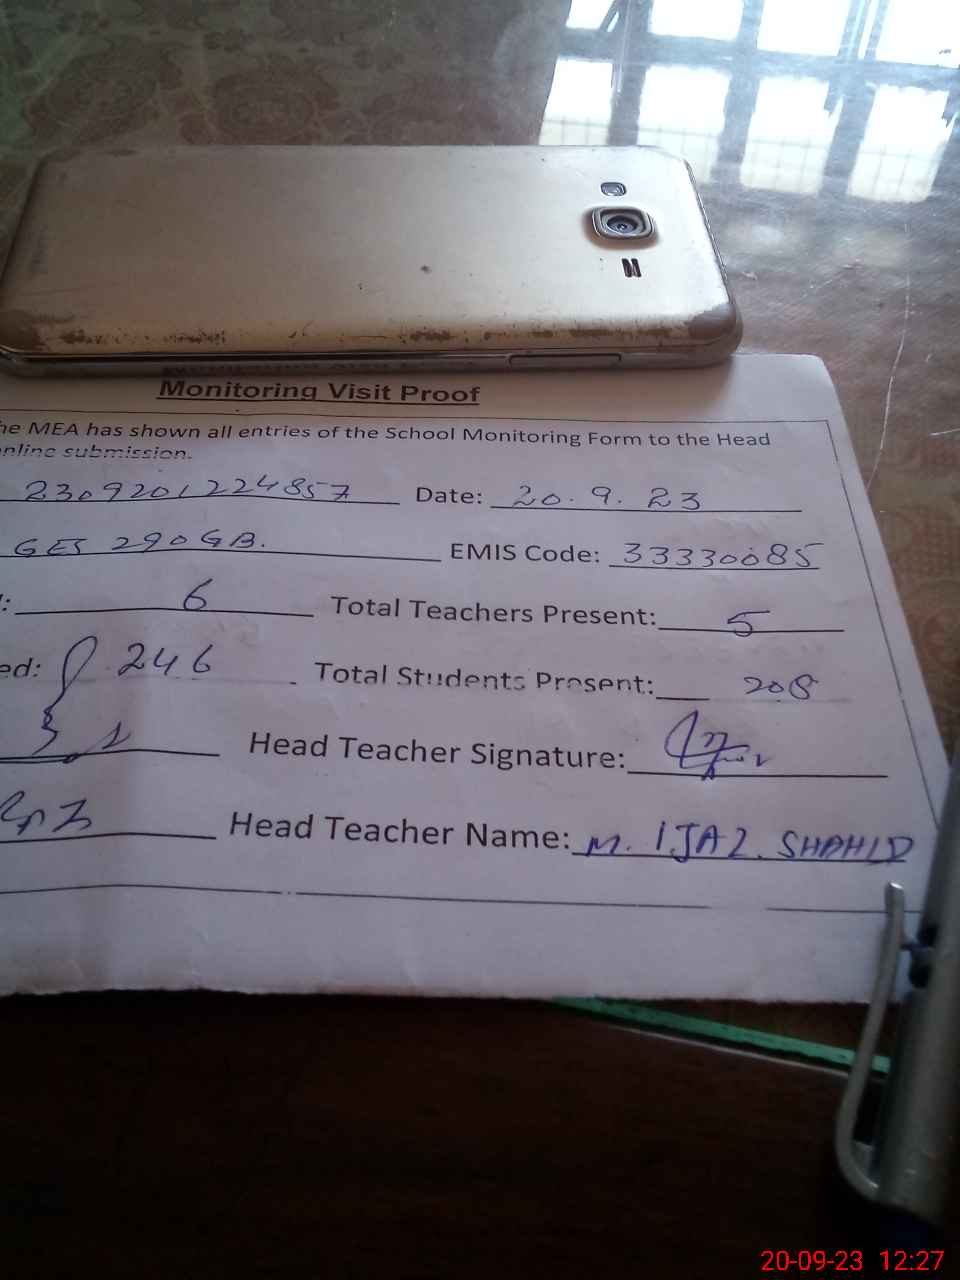 Monitoring Visit Proof
he MEA has shown all entries of the School Monitoring Form to the Head
nline submission.
2309201224857 Date: 20.9.23
GES 290GB. EMIS Code: 33330085
: 6 Total Teachers Present: 5
ed: 246 Total Students Present: 208
Head Teacher Signature:
Head Teacher Name: M. IJAZ. SHAHID
20-09-23 12:27